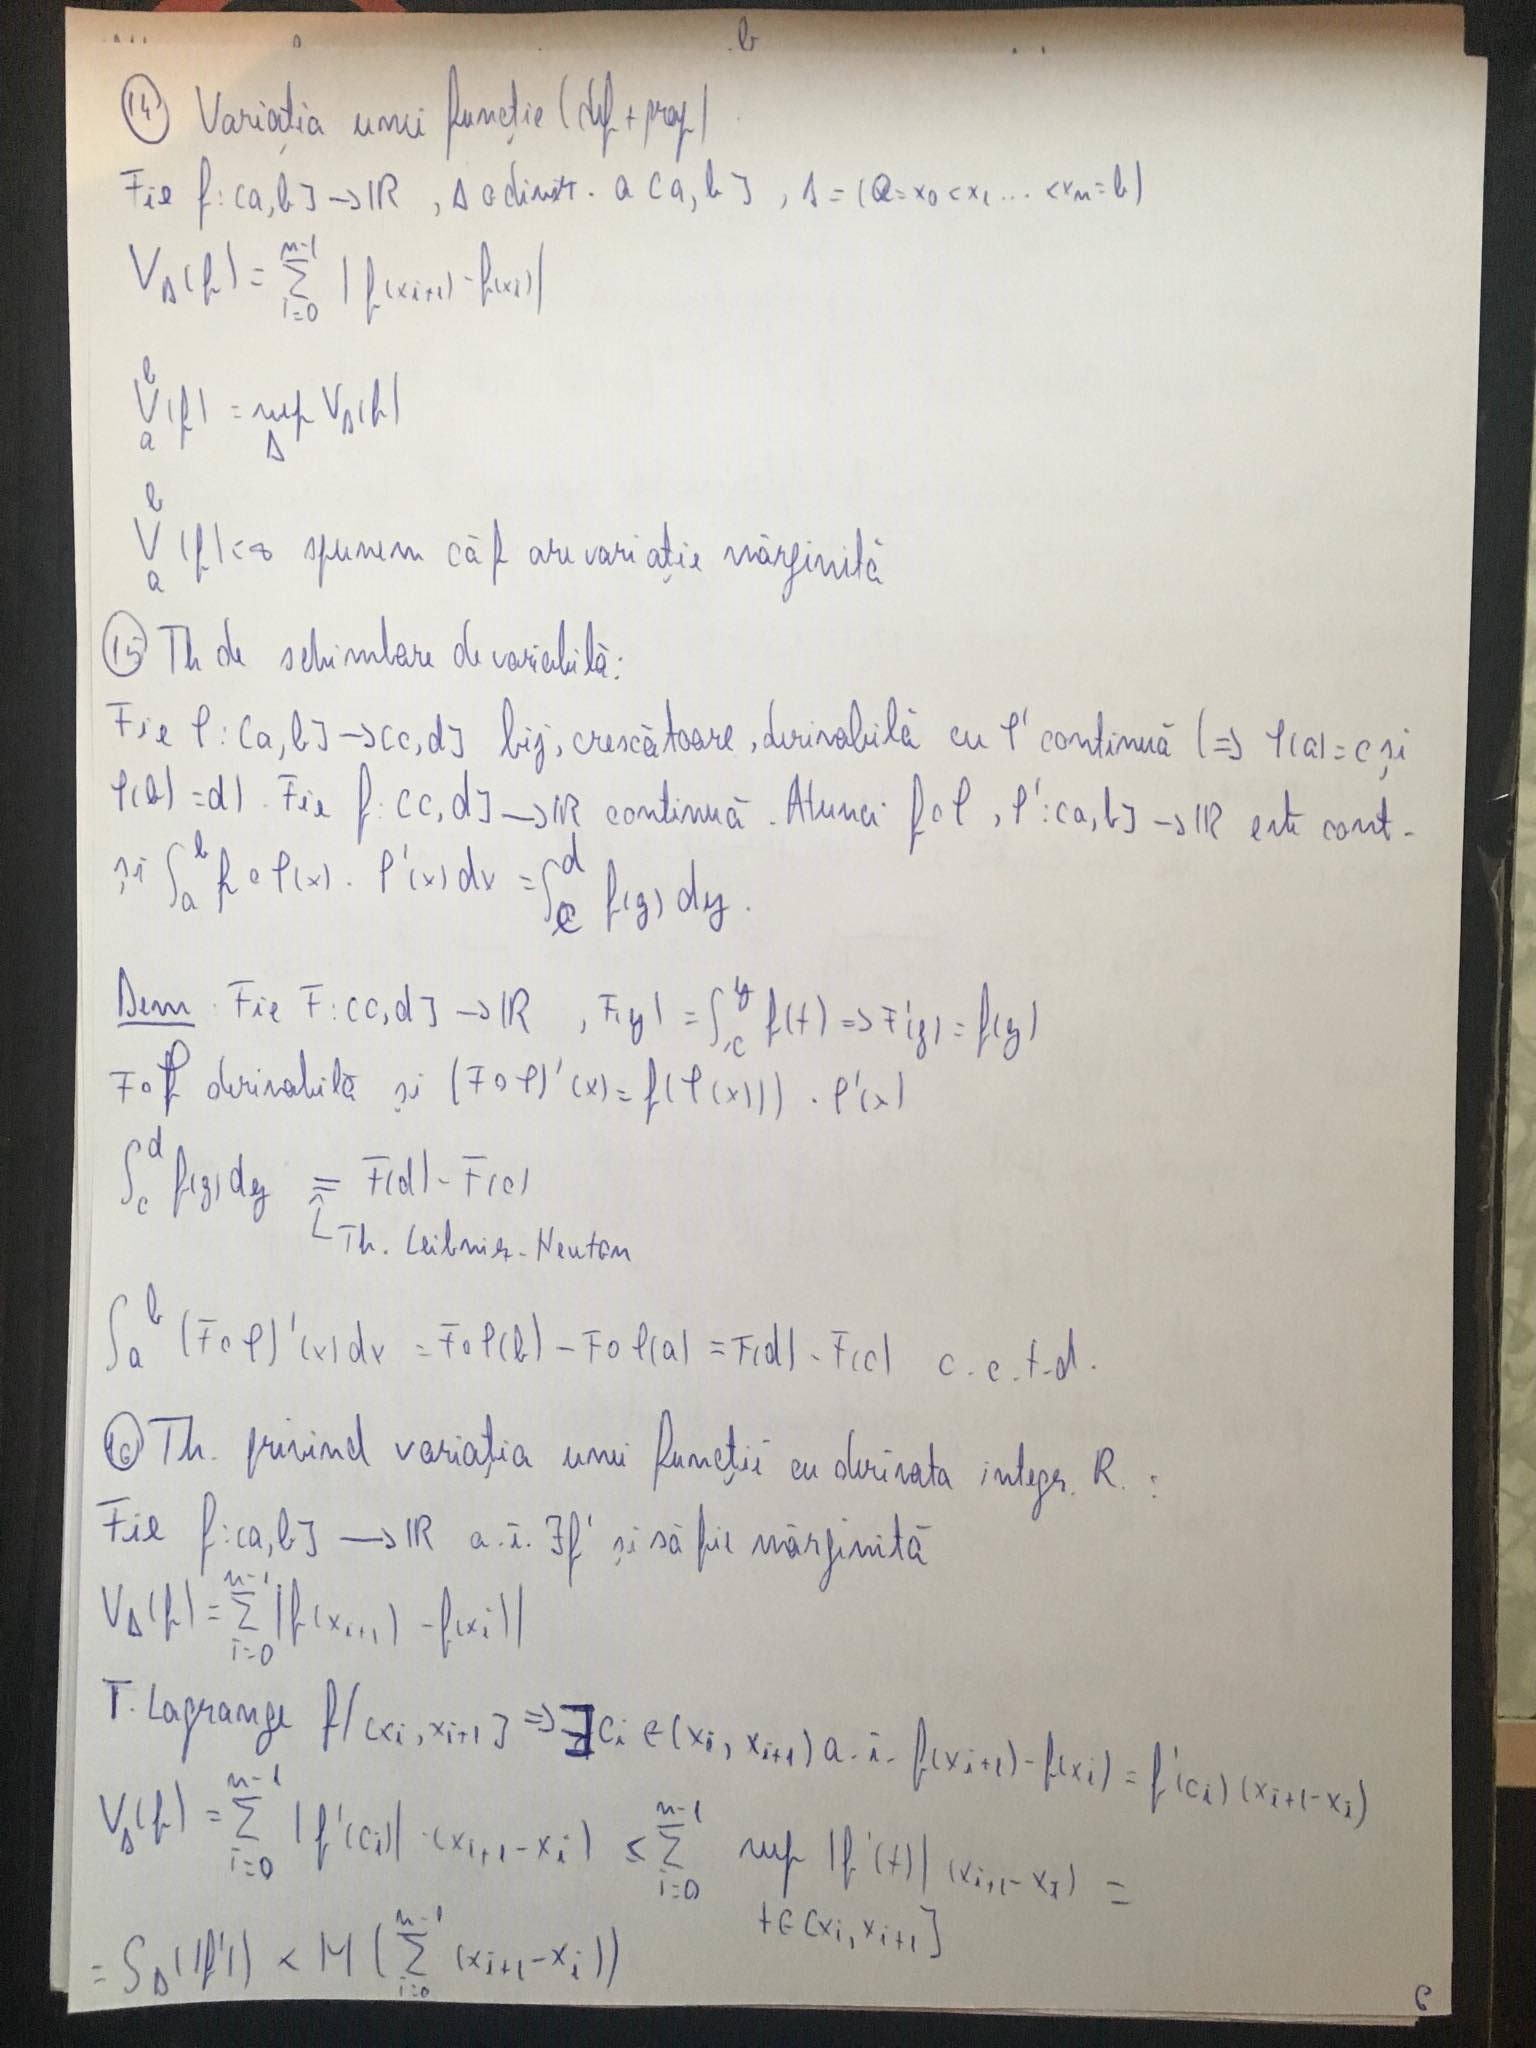 (14) Variația unui funcție (def + prop)
Fie f: [a,b] → ℝ, Δ o diviz. a [a,b], Δ = (a = x₀ < x₁ ... < xₙ = b)
V_Δ(f) = Σ_{i=0}^{n-1} |f(x_{i+1}) - f(x_i)|
V_a^b (f) = sup_Δ V_Δ(f)
V_a^b (f) < ∞ spunem că f are variație mărginită
(15) Th de schimbare de variabilă:
Fie φ: [a,b] → [c,d] bij, crescătoare, derivabilă cu φ' continuă (⇒ φ(a) = c și
φ(b) = d). Fie f: [c,d] → ℝ continuă. Atunci f∘φ, φ': [a,b] → ℝ este cont.
și ∫_a^b f∘φ(x) · φ'(x) dx = ∫_c^d f(y) dy.
Dem. Fie F: [c,d] → ℝ, F(y) = ∫_c^y f(t) ⇒ F'(y) = f(y)
F∘φ derivabilă și (F∘φ)'(x) = f(φ(x))) · φ'(x)
∫_c^d f(y) dy = F(d) - F(c)
Th. Leibniz-Newton
∫_a^b (F∘φ)'(x) dx = F∘φ(b) - F∘φ(a) = F(d) - F(c) c.c.t.d.
(16) Th. privind variația unui funcții cu derivata integr. R. :
Fie f: [a,b] → ℝ a.î. ∃f' și să fie mărginită
V_Δ(f) = Σ_{i=0}^{n-1} |f(x_{i+1}) - f(x_i)|
T. Lagrange f/[x_i, x_{i+1}] ⇒ ∃c_i ∈ (x_i, x_{i+1}) a.î. f(x_{i+1}) - f(x_i) = f'(c_i)(x_{i+1} - x_i)
V_Δ(f) = Σ_{i=0}^{n-1} |f'(c_i)| · (x_{i+1} - x_i) ≤ Σ_{i=0}^{n-1} sup_{t∈[x_i, x_{i+1}]} |f'(t)| (x_{i+1} - x_i) =
= S_Δ(|f'|) < M (Σ_{i=0}^{n-1} (x_{i+1} - x_i))
6